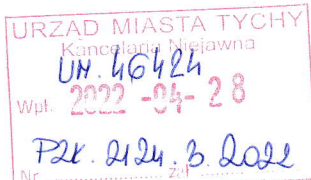 URZĄD MIASTA TYCHY
Kancelaria Niejawna
UM. 46424
Wpł. 2022 -04- 28
PZK. 2124. 3. 2022
Nr zał